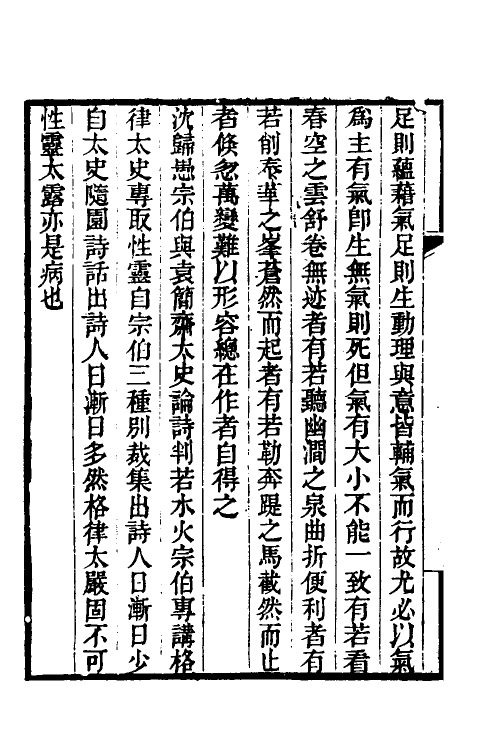 足則蘊藉氣足則生動理與意皆輔氣而行故尤必以氣
爲主有氣卽生無氣則死但氣有大小不能一致有若看
春空之雲舒卷無迹者有若聽幽澗之泉曲折便利者有
若創泰華之峯蒼然而起者有若勒奔踶之馬截然而止
者倏忽萬變難以形容總在作者自得之
沈歸愚宗伯與袁簡齋太史論詩判若水火宗伯專講格
律太史專取性靈自宗伯三種別裁集出詩人日漸日少
自太史隨園詩話出詩人日漸日多然格律太嚴固不可
性靈太露亦是病也